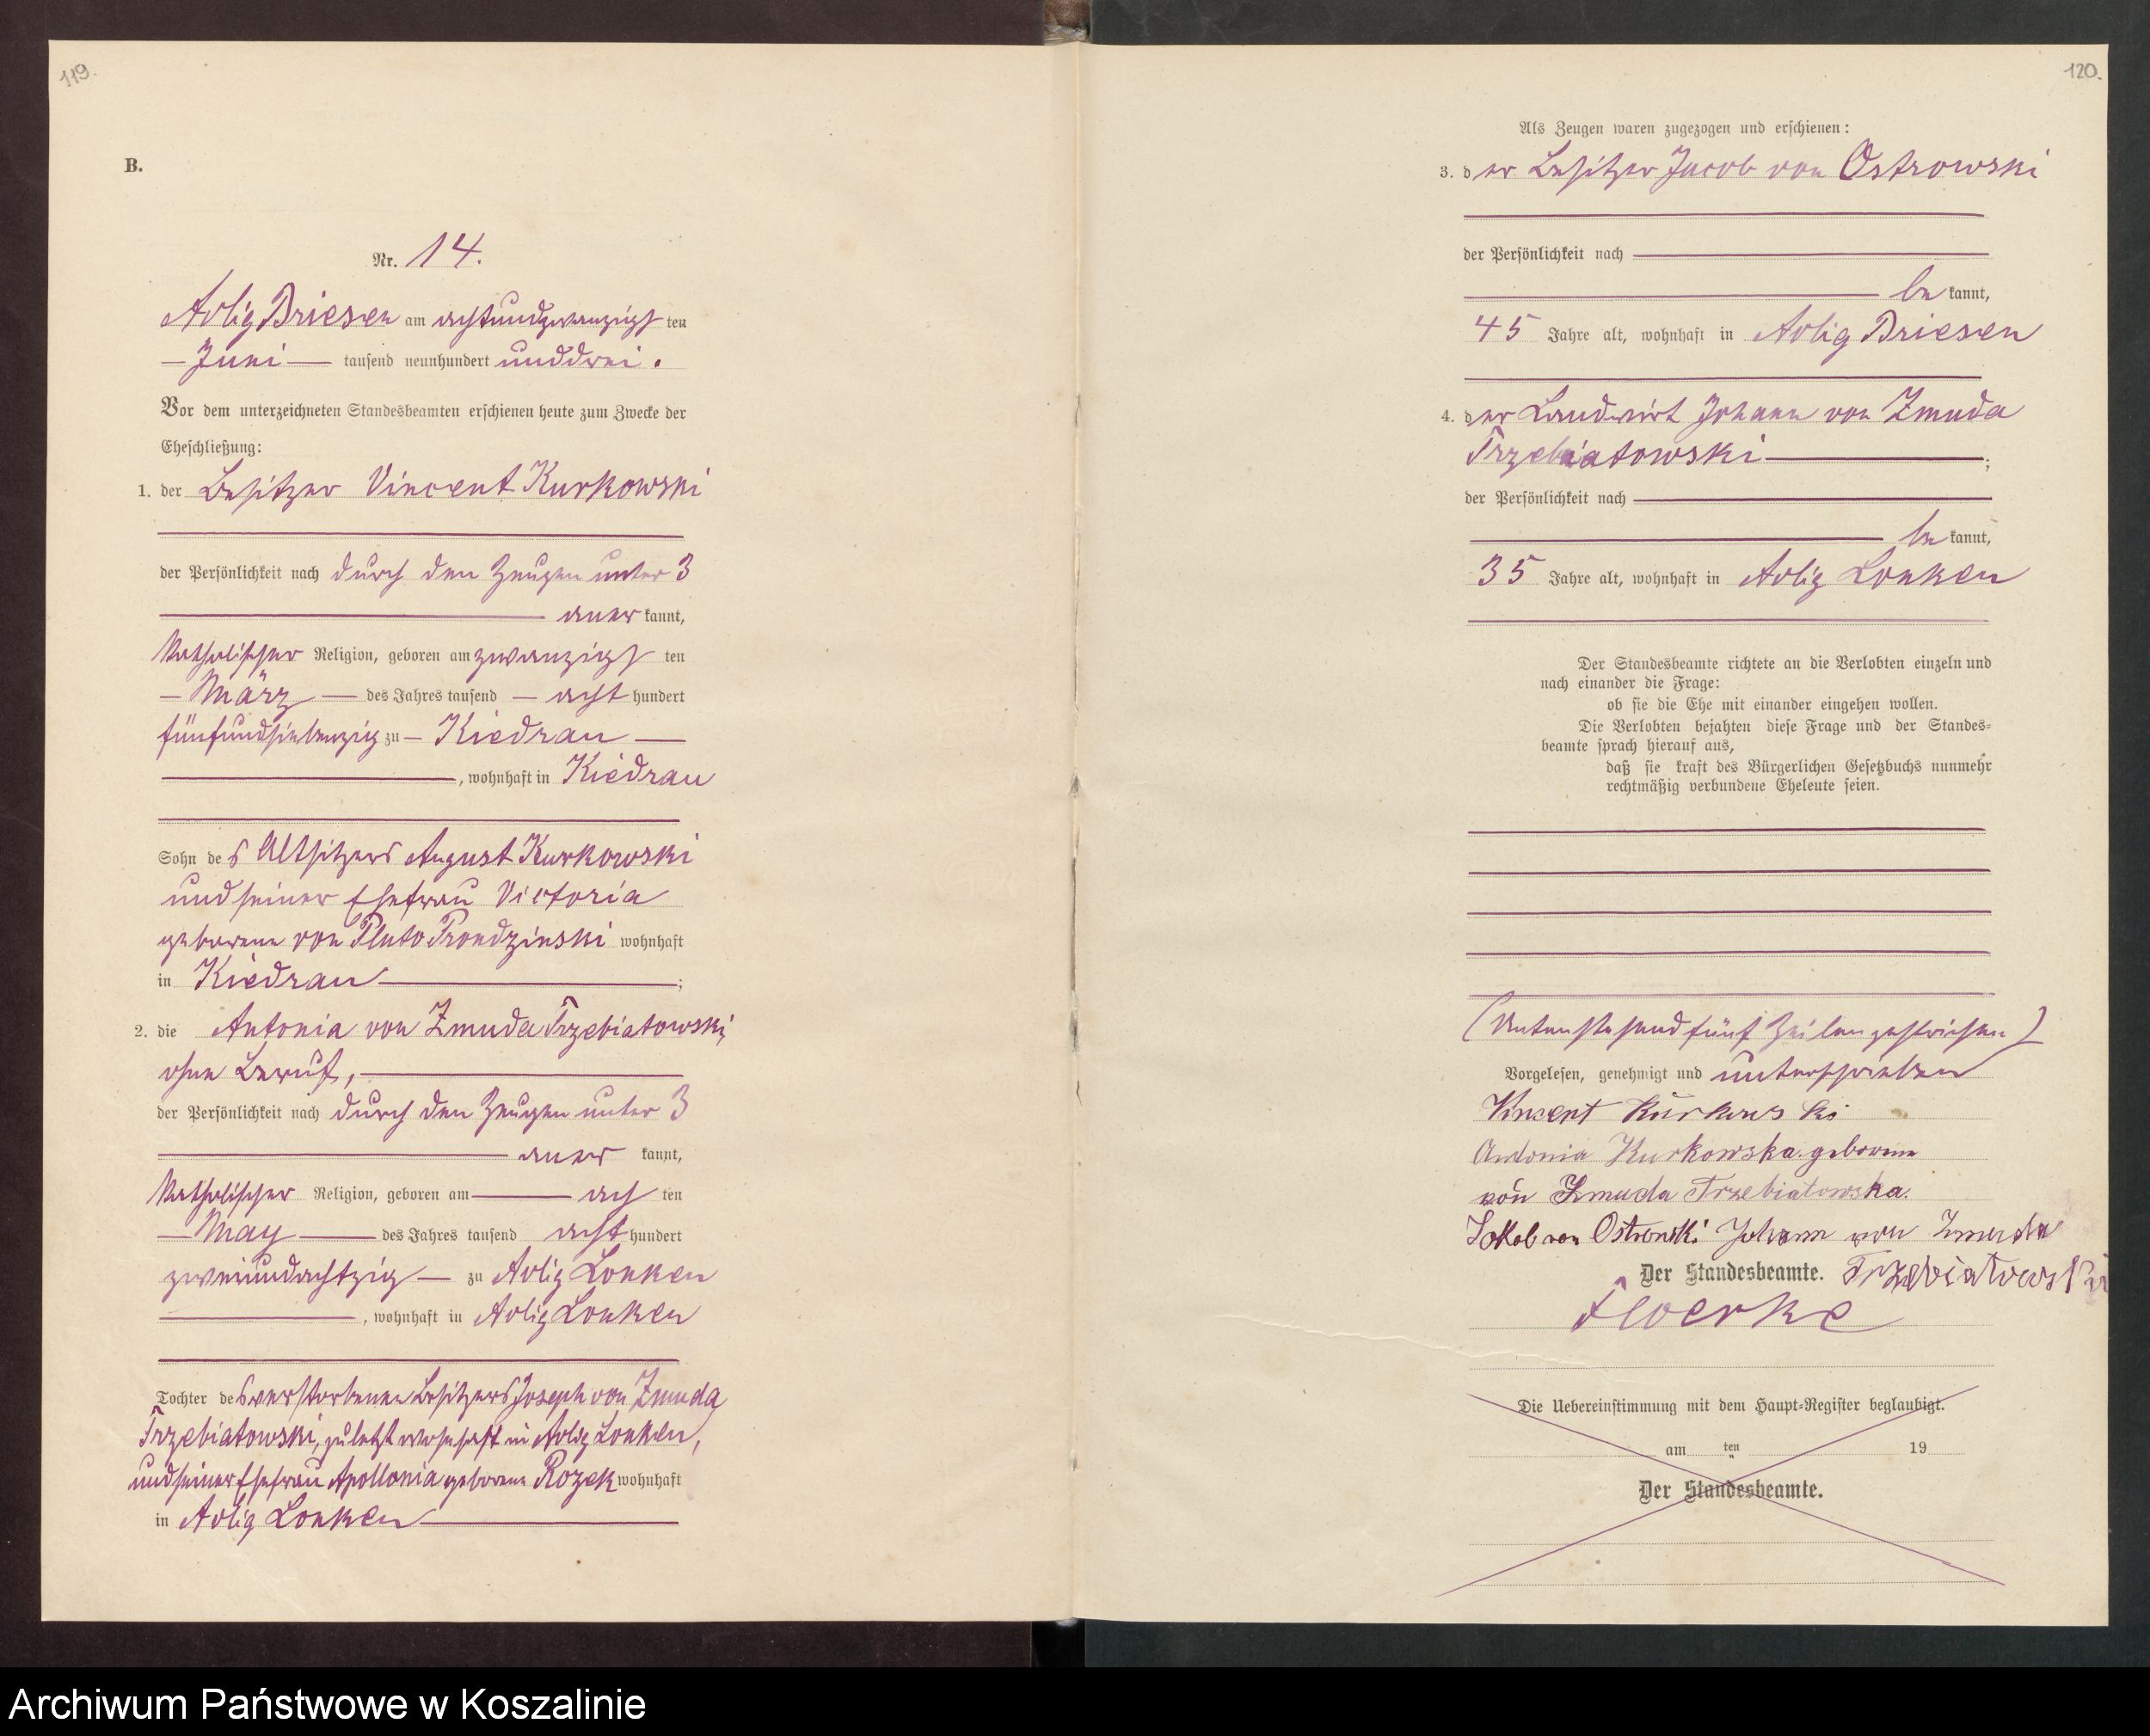 119.
B.
Nr. 14.
Adlig Briesen am achtundzwanzigsten
Juni tausend neunhundert unddrei.
Vor dem unterzeichneten Standesbeamten erschienen heute zum Zwecke der
Eheschließung:
1. der Besitzer Vincent Kurkowski
der Persönlichkeit nach durch den Zeugen unter 3
anerkannt,
katholischer Religion, geboren am zwanzigsten
März des Jahres tausend achthundert
fünfundsiebenzig zu Kiedrau
, wohnhaft in Kiedrau
Sohn des Altsitzers August Kurkowski
und seiner Ehefrau Victoria
geborene von Pluto Prondzinski wohnhaft
in Kiedrau ;
2. die Antonia von Zmuda Trzebiatowski,
ohne Beruf,
der Persönlichkeit nach durch den Zeugen unter 3
anerkannt,
katholischer Religion, geboren am achten
May des Jahres tausend achthundert
zweiundachtzig zu Adlig Lonken
, wohnhaft in Adlig Lonken
Tochter des verstorbenen Besitzers Joseph von Zmuda
Trzebiatowski, zuletzt wohnhaft in Adlig Lonken,
und seiner Ehefrau Apollonia geborene Rozek wohnhaft
in Adlig Lonken
120.
Als Zeugen waren zugezogen und erschienen:
3. der Besitzer Jacob von Ostrowski
der Persönlichkeit nach
bekannt,
45 Jahre alt, wohnhaft in Adlig Briesen
4. der Landwirt Johann von Zmuda
Trzebiatowski ;
der Persönlichkeit nach
bekannt,
35 Jahre alt, wohnhaft in Adlig Lonken
Der Standesbeamte richtete an die Verlobten einzeln und
nach einander die Frage:
ob sie die Ehe mit einander eingehen wollen.
Die Verlobten bejahten diese Frage und der Standes=
beamte sprach hierauf aus,
daß sie kraft des Bürgerlichen Gesetzbuchs nunmehr
rechtmäßig verbundene Eheleute seien.
(Untenstehend fünf Zeilen gestrichen)
Vorgelesen, genehmigt und unterschrieben
Vincent Kurkowski
Antonia Kurkowska geborene
von Zmuda Trzebiatowska.
Jakob von Ostrowski Johann von Zmuda
Der Standesbeamte. Trzebiatowski
Floerke
Die Uebereinstimmung mit dem Haupt=Register beglaubigt.
am ten 19
Der Standesbeamte.
Archiwum Państwowe w Koszalinie